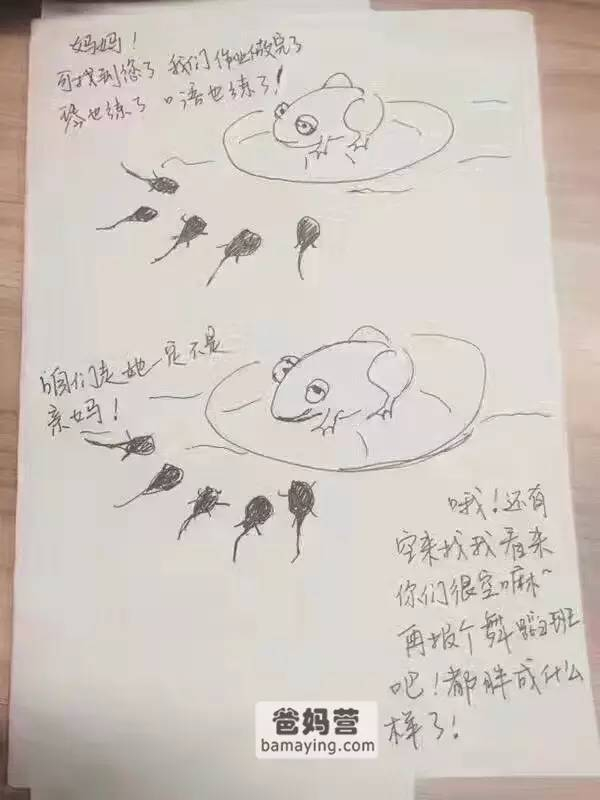 妈妈！
可找到您了 我们作业做完了
琴也练了 口语也练了！
咱们走她一定不是
亲妈！
哦！还有
空来找我看来
你们很空嘛~
再报个舞蹈班
吧！都胖成什么
样了！
爸妈营
bamaying.com